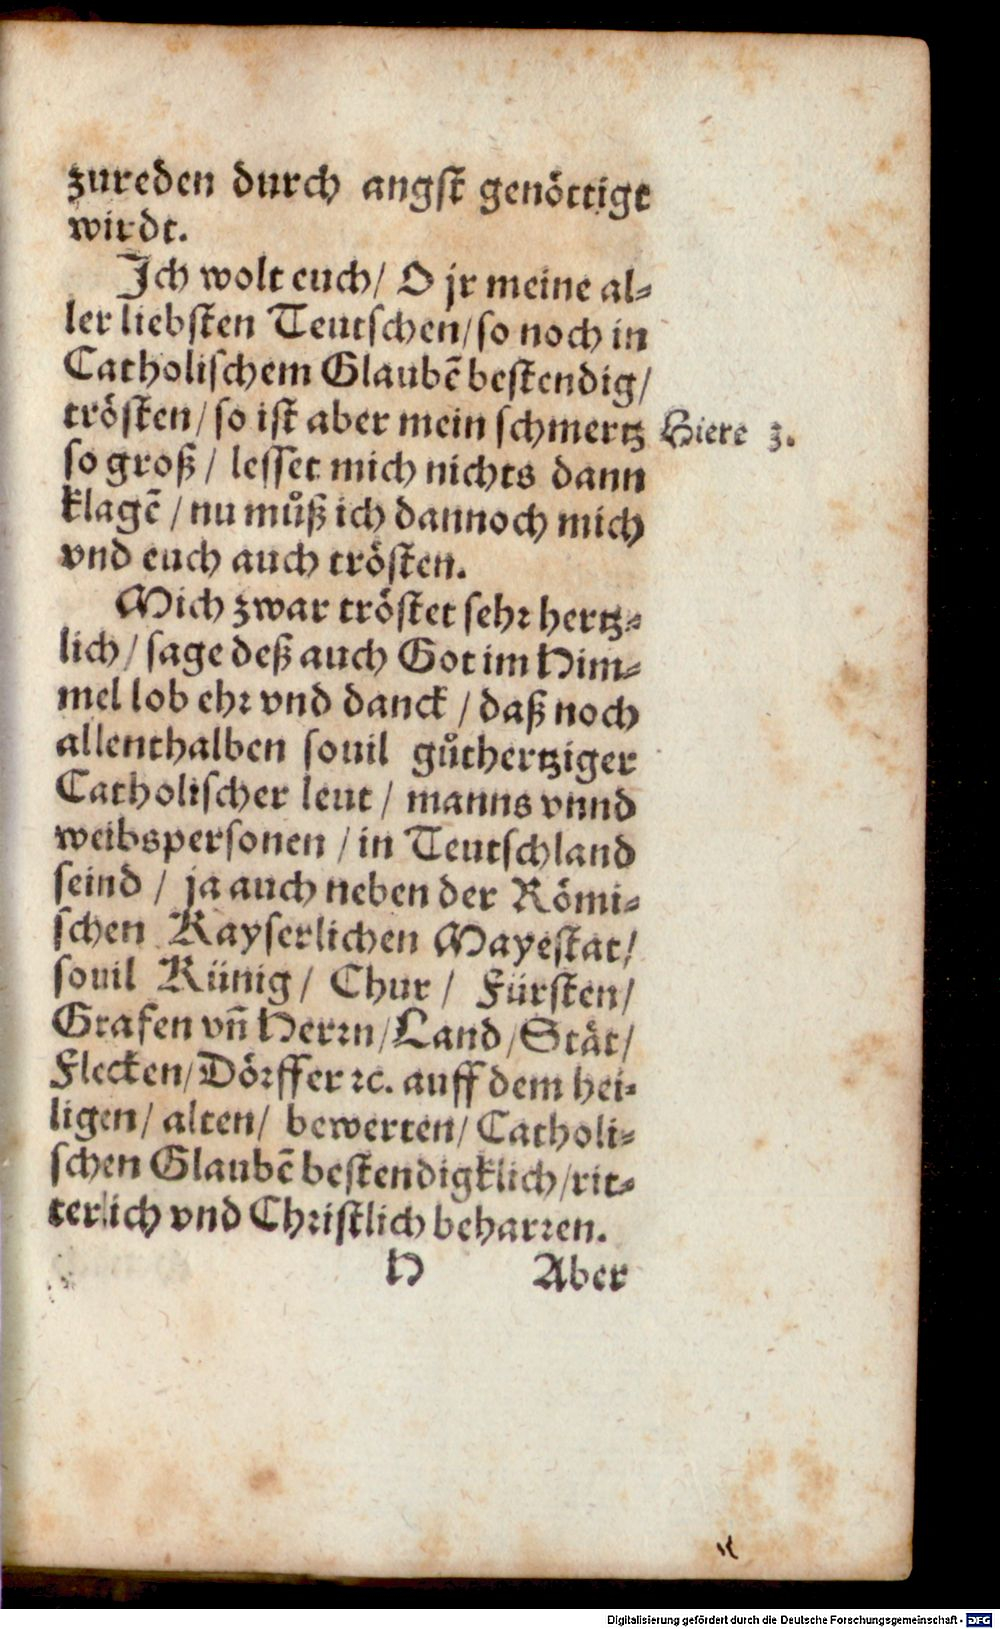 zureden durch angst genöttigt
wirdt.
Ich wolt euch/ O jr meine al⸗
ler liebsten Teutschen/so noch in
Catholischem Glaubẽ bestendig/
trösten/so ist aber mein schmertz
Hiere 3.
so groß/ lesset mich nichts dann
klagẽ/nu můß ich dannoch mich
vnd euch auch trösten.
Mich zwar tröstet sehr hertz⸗
lich/sage deß auch Got im Him⸗
mel lob ehr vnd danck/daß noch
allenthalben souil gůthertziger
Catholischer leut/ manns vnnd
weibspersonen/in Teutschland
seind/ ja auch neben der Römi⸗
schen Kayserlichen Mayestat/
souil Künig/ Chur/ Fürsten/
Grafen vñ Herrn/Land/Stät/
Flecken/Dörffer ꝛc. auff dem hei⸗
ligen/ alten/ bewerten/Catholi⸗
schen Glaubẽ bestendigklich/rit⸗
terlich vnd Christlich beharren.
H Aber
Digitalisierung gefördert durch die Deutsche Forschungsgemeinschaft - DFG